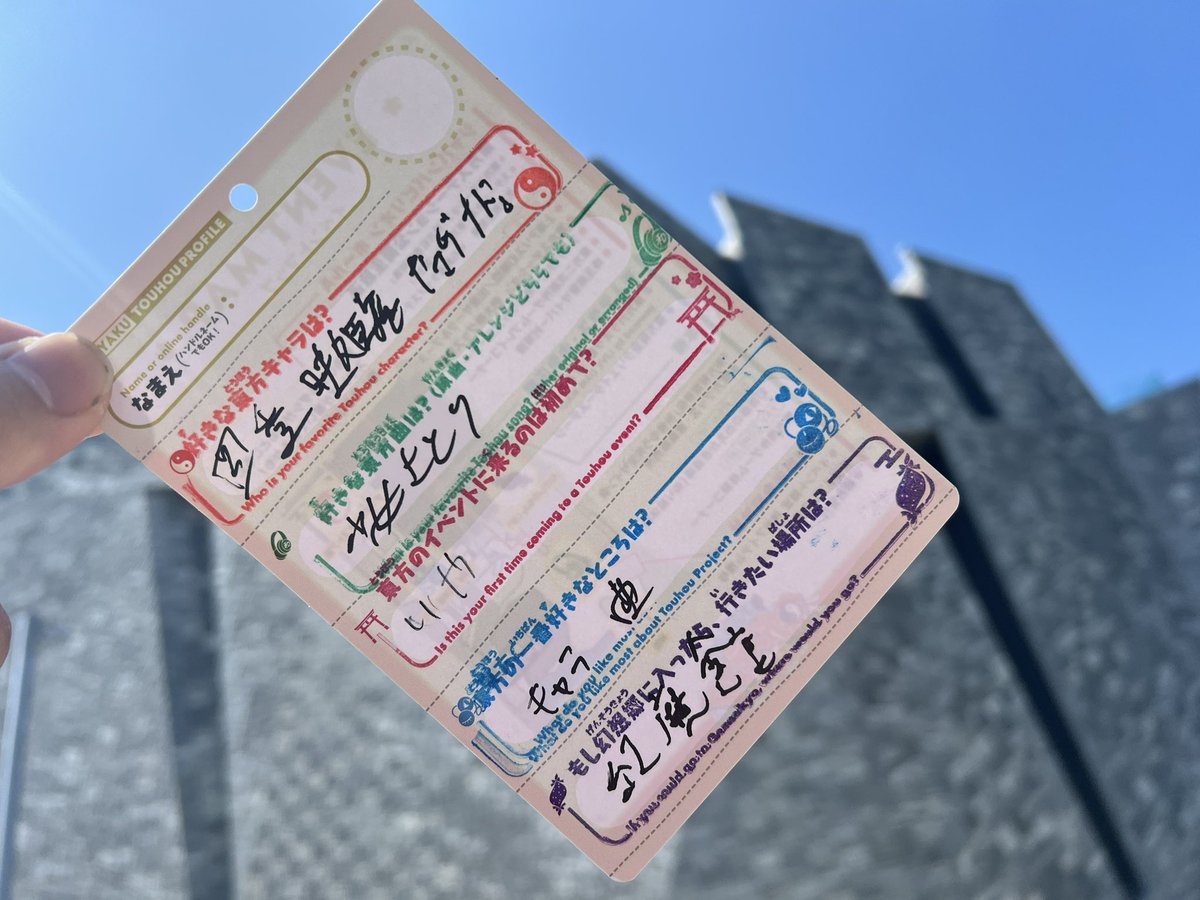 YAKU TOUHOU PROFILE
Name or online handle
なまえ(ハンドルネームでもOK!):
好きな東方キャラは?
四季映姫
Who is your favorite Touhou character?
好きな東方曲は?(原曲・アレンジどちらでも)
What is your favorite Touhou song? (Either original or arranged)
東方のイベントに来るのは初めて?
いいえ
Is this your first time coming to a Touhou event?
東方の一番好きなところは?
キャラ 曲
What do you like most about Touhou Project?
もし幻想郷に入ったら、行きたい場所は?
紅魔館
where would you go?